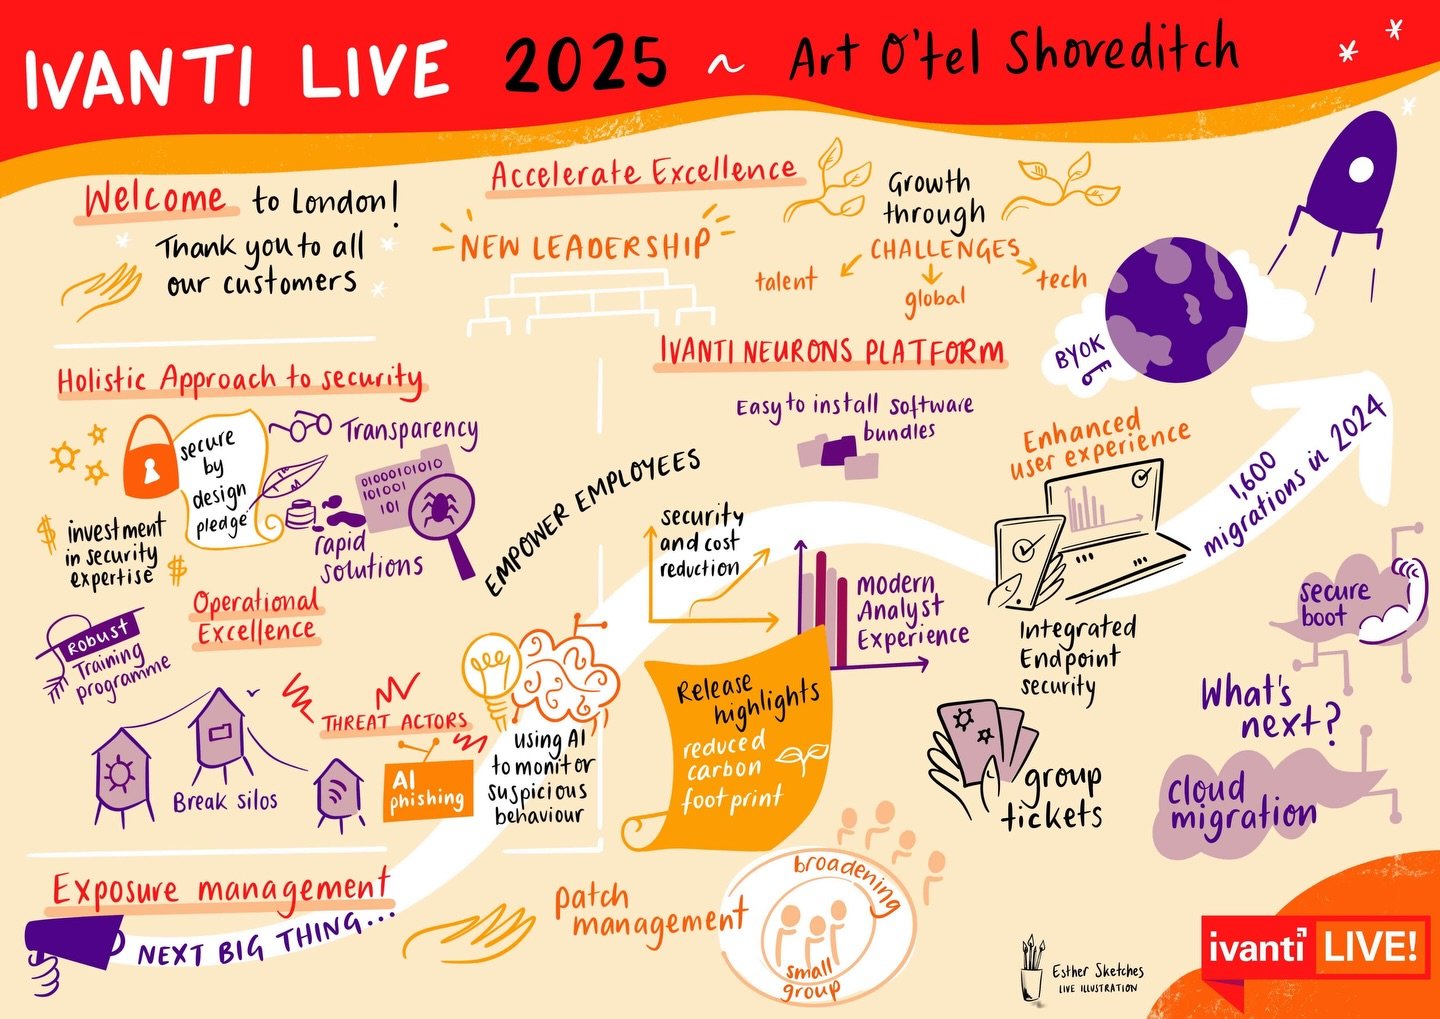 IVANTI LIVE 2025 ~ Art O'tel Shoreditch
Welcome to London!
Thank you to all
our customers
Accelerate Excellence
NEW LEADERSHIP
Growth
through
CHALLENGES
talent
global
tech
Holistic Approach to security
secure
by
design
pledge
Transparency
01000101010
101001
101
investment
in security
expertise
$
$
rapid
solutions
Operational
Excellence
ROBUST
Training
programme
Break silos
THREAT ACTORS
AI
phishing
using AI
to monitor
suspicious
behaviour
EMPOWER EMPLOYEES
IVANTI NEURONS PLATFORM
Easy to install software
bundles
BYOK
Enhanced
user experience
1,600
migrations in 2024
security
and cost
reduction
Modern
Analyst
Experience
Integrated
Endpoint
security
Release
highlights
reduced
carbon
footprint
group
tickets
secure
boot
What's
next?
cloud
migration
Exposure management
NEXT BIG THING...
patch
management
broadening
small
group
Esther Sketches
LIVE ILLUSTRATION
ivanti LIVE!